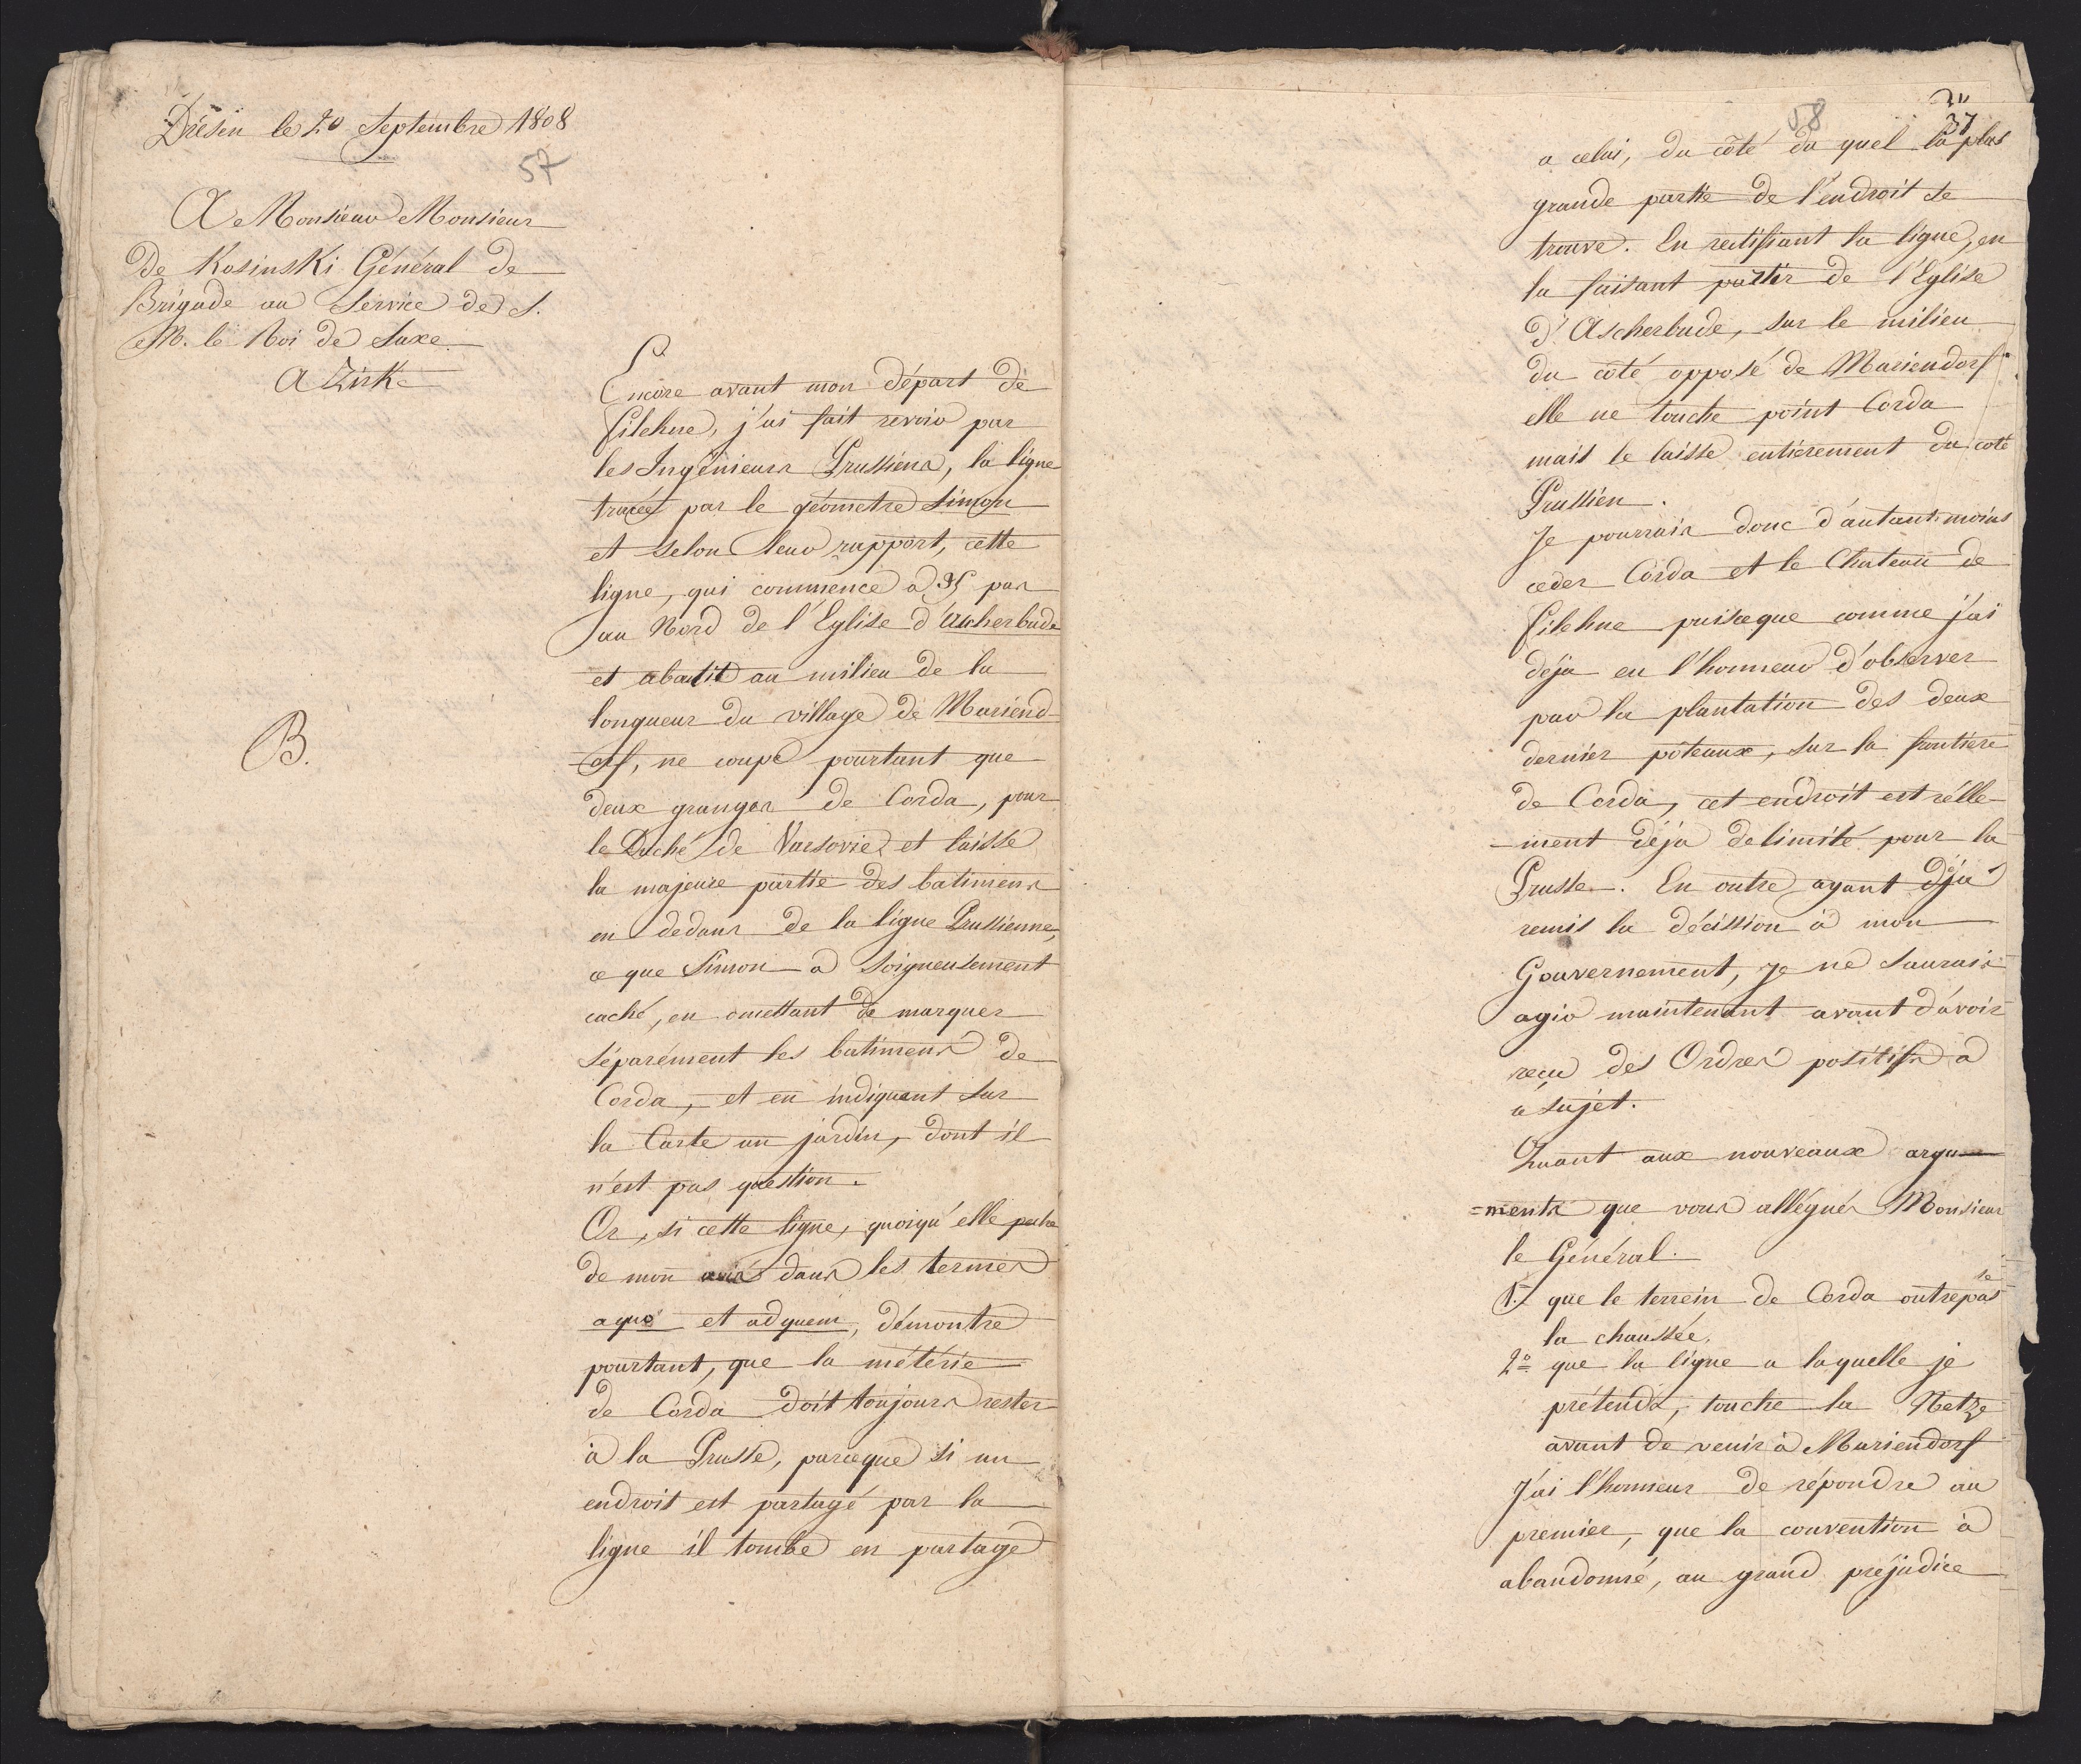 Driesen le 20 Septembre 1808
57
A Monsieur Monsieur
De Kosinski Général de
Brigade au Service de S.
M. le Roi de Saxe
A Zirke
B.
Encore avant mon départ de
Filehne, j'ai fait revoir par
les Ingénieurs Prussiens, la ligne
tracée par le géometre Simon
et selon leur rapport, cette
ligne, qui commence a 35 pas
au Nord de l'Eglise d'Ascherbude
et aboutit au milieu de la
longueur du village de Mariend-
-orf, ne coupe pourtant que
deux granges de Corda, pour
le Duché de Varsovie et laisse
la majeure partie des batimens
en dedans de la ligne Prussienne,
ce que Simon a soigneusement
caché, en omettant de marquer
séparément les batimens de
Corda, et en indiquant sur
la Carte un jardin, dont il
n'est pas question.
Or, si cette ligne, quoiqu'elle peche
de mon avis dans les termes
a quo et ad quem, démontre
pourtant, que la métérie
de Corda doit toujours rester
à la Prusse, parceque si un
endroit est partagé par la
ligne il tombe en partage
58
37
a celui, du côté du quel la plus
grande partie de l'endroit se
trouve. En rectifiant la ligne, en
la faisant partir de l'Eglise
d'Ascherbude, sur le milieu
du côté opposé de Mariendorf
elle ne touche point Corda
mais le laisse entièrement du coté
Prussien.
Je pourrais donc d'autant moins
ceder Corda et le Chateau de
Filehne puiseque comme j'ai
déja eu l'honneur d'observer
par la plantation des deux
dernier poteaux, sur la frontiere
de Corda, cet endroit est réelle-
-ment déja delimité pour la
Prusse. En outre ayant déja
remis la décission à mon
Gouvernement, je ne saurais
agir maintenant avant d'avoir
reçu des Ordres positifs a
ce sujet.
Quant aux nouveaux argu-
=ments que vous allégués Monsieur
le Général.
1.° que le terrein de Corda outrepas
se
la chaussée.
2° que la ligne a laquelle je
prétends, touche la Netze
avant de venir à Mariendorf
J'ai l'honneur de répondre au
premier, que la convention à
abandonné, au grand préjudice